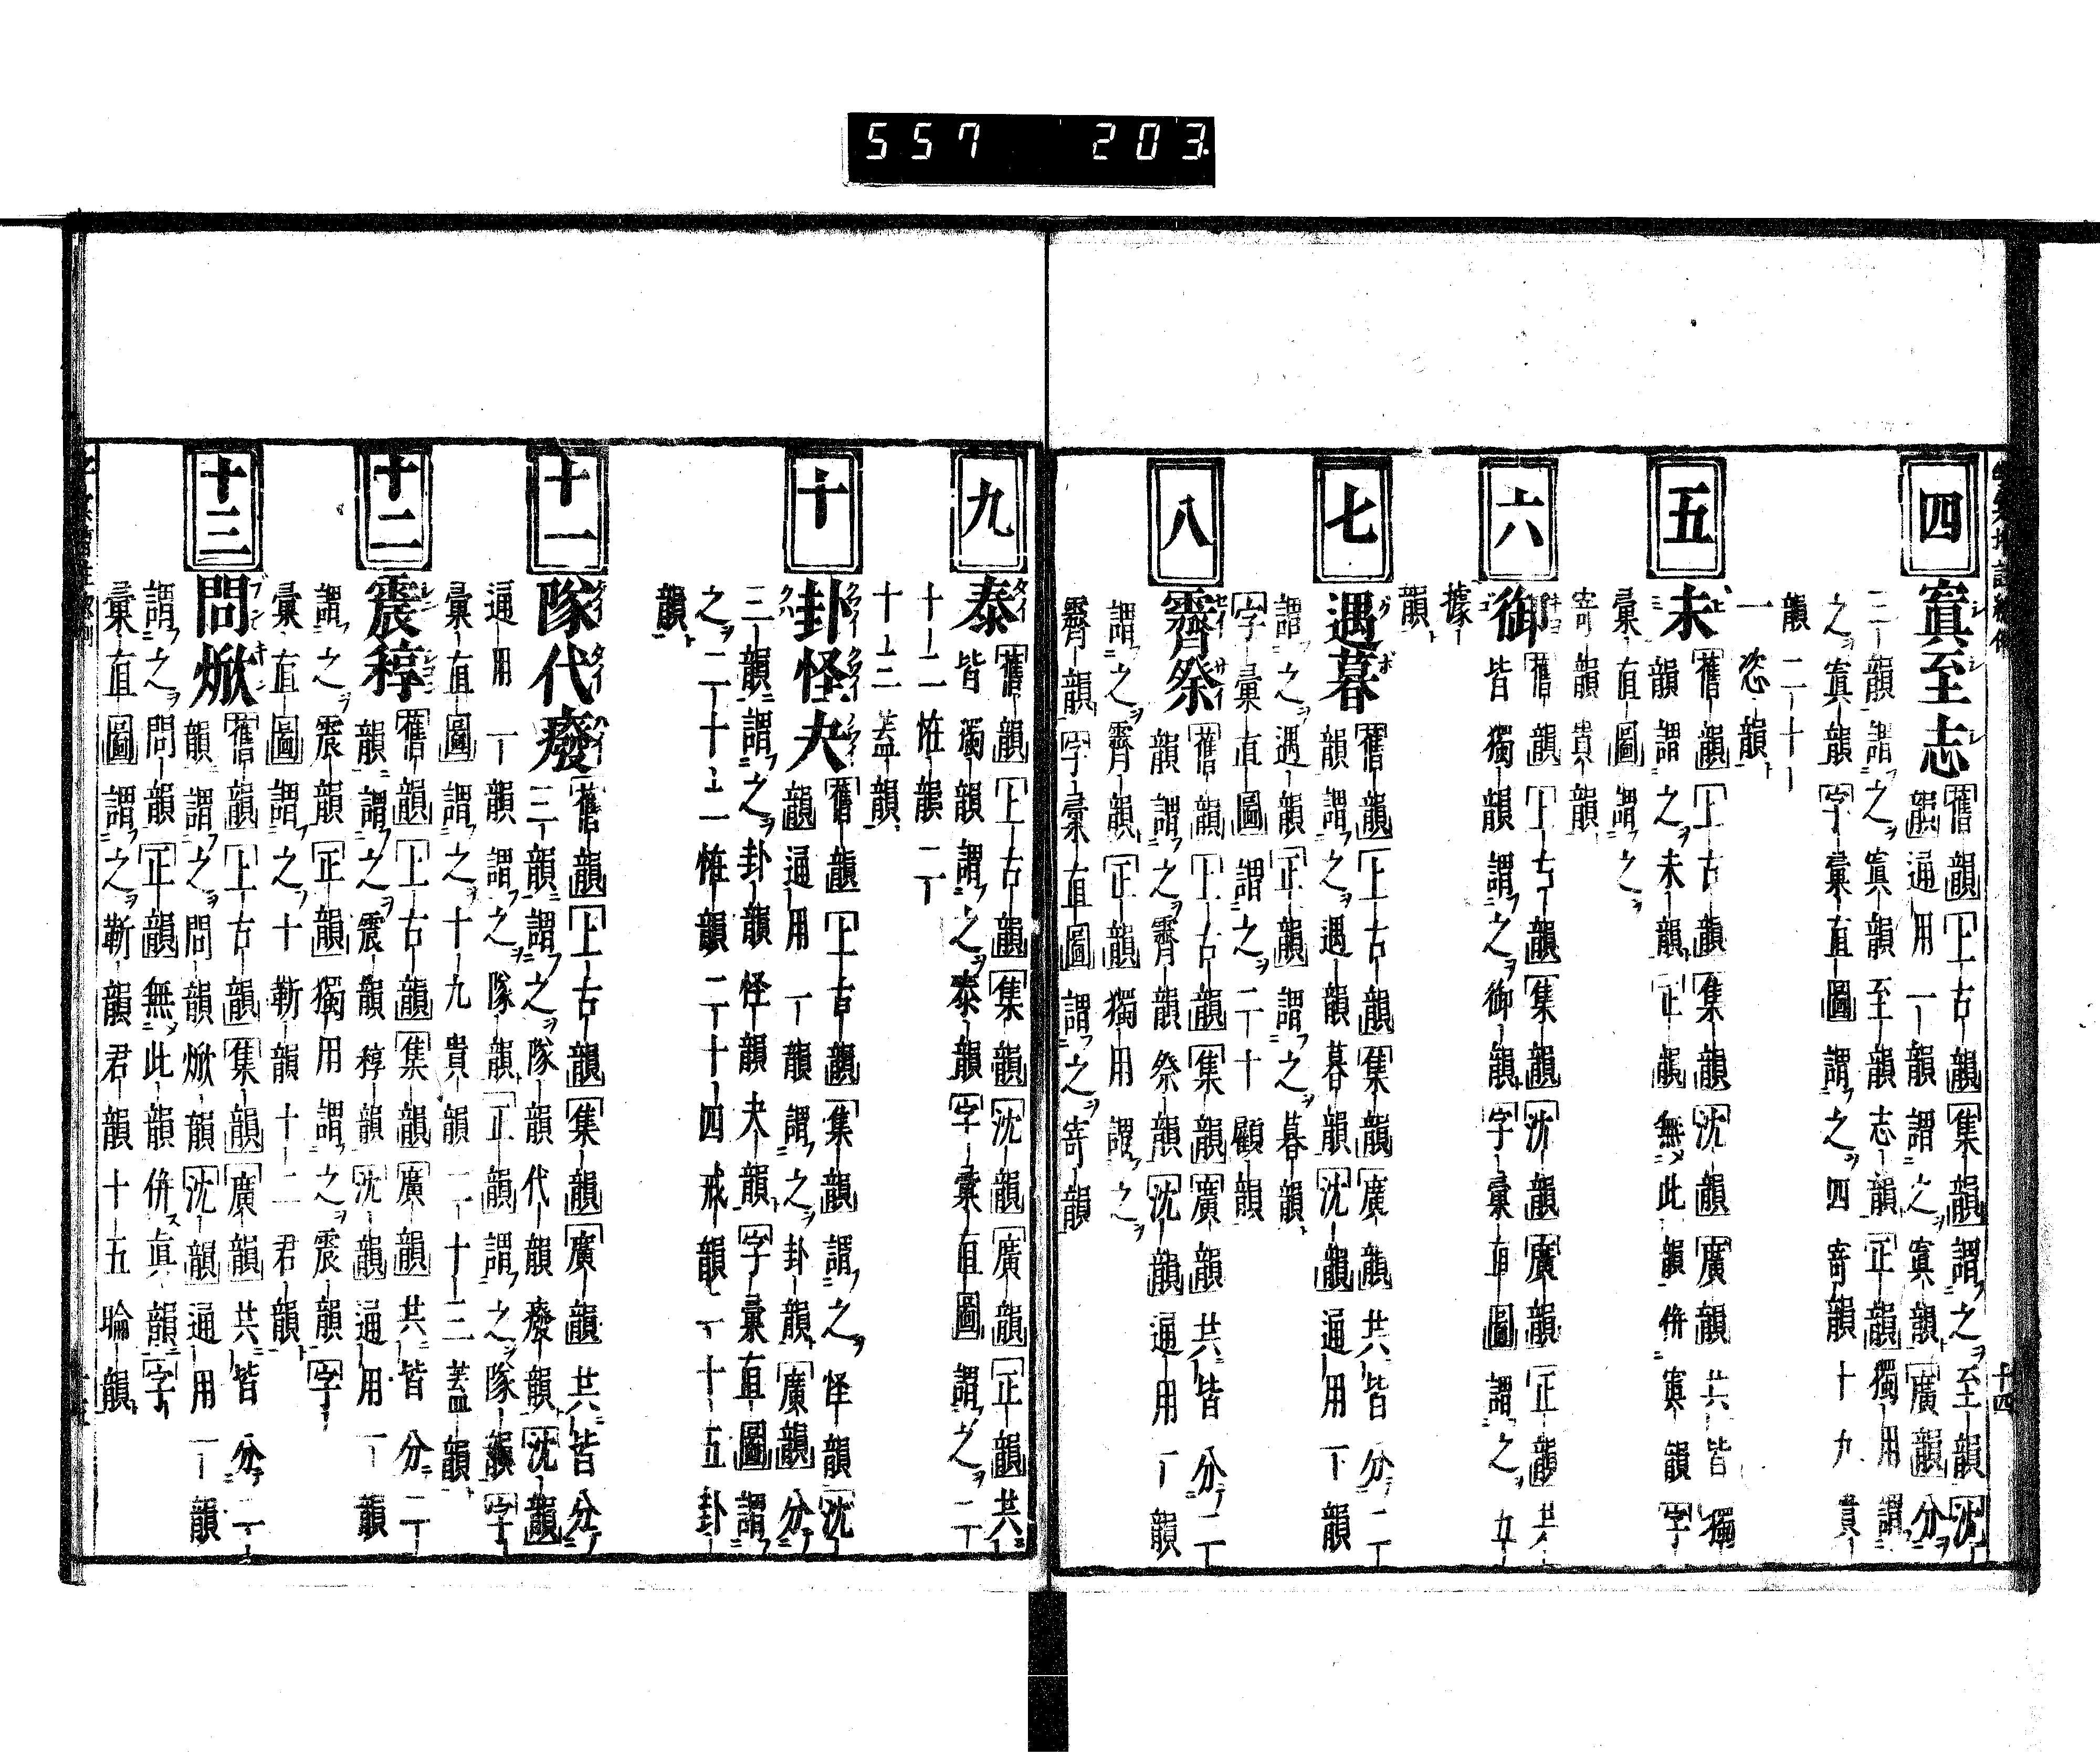 557 203
四
寘至志
舊韻上古韻集韻謂之至韻沈
韻通用一韻謂之寘韻廣韻分
三韻謂之寘韻至韻志韻正韻獨用謂
之寘韻字彙直圖謂之四寄韻十九貴
韻二十
一恣韻
五
未
舊韻上古韻集韻沈韻廣韻共皆獨
韻謂之未韻正韻無此韻併寘韻字
彙直圖謂之
寄韻貴韻
六
御
舊韻上古韻集韻沈韻廣韻正韻共
皆獨韻謂之御韻字彙直圖謂之女
據
韻
七
遇暮
舊韻上古韻集韻廣韻共皆分二
韻謂之遇韻暮韻沈韻通用一韻
謂之遇韻正韻謂之暮韻
字彙直圖謂之二十顧韻
八
霽祭
舊韻上古韻集韻廣韻共皆分二
韻謂之霽韻祭韻沈韻通用一韻
謂之霽韻正韻獨用謂之
霽韻字彙直圖謂之寄韻
十四
九
泰
舊韻上古韻集韻沈韻廣韻正韻共
皆獨韻謂之泰韻字彙直圖謂之二
十二恠韻二
十三蓋韻
十
卦怪夬
舊韻上古韻集韻謂之怪韻沈
韻通用一韻謂之卦韻廣韻分
三韻謂之卦韻怪韻夬韻字彙直圖謂
之二十二恠韻二十四戒韻二十五卦
韻
十一
隊代癈
舊韻上古韻集韻廣韻共皆分
三韻謂之隊韻代韻癈韻沈韻
通用一韻謂之隊韻正韻謂之隊韻字
彙直圖謂之十九貴韻二十三蓋韻
十二
震稕
舊韻上古韻集韻廣韻共皆分二
韻謂之震韻稕韻沈韻通用一韻
謂之震韻正韻獨用謂之震韻字
彙直圖謂之十靳韻十二君韻
十三
問焮
舊韻上古韻集韻廣韻共皆分二
韻謂之問韻焮韻沈韻通用一韻
謂之問韻正韻無此韻併眞韻字
彙直圖謂之靳韻君韻十五㷍韻